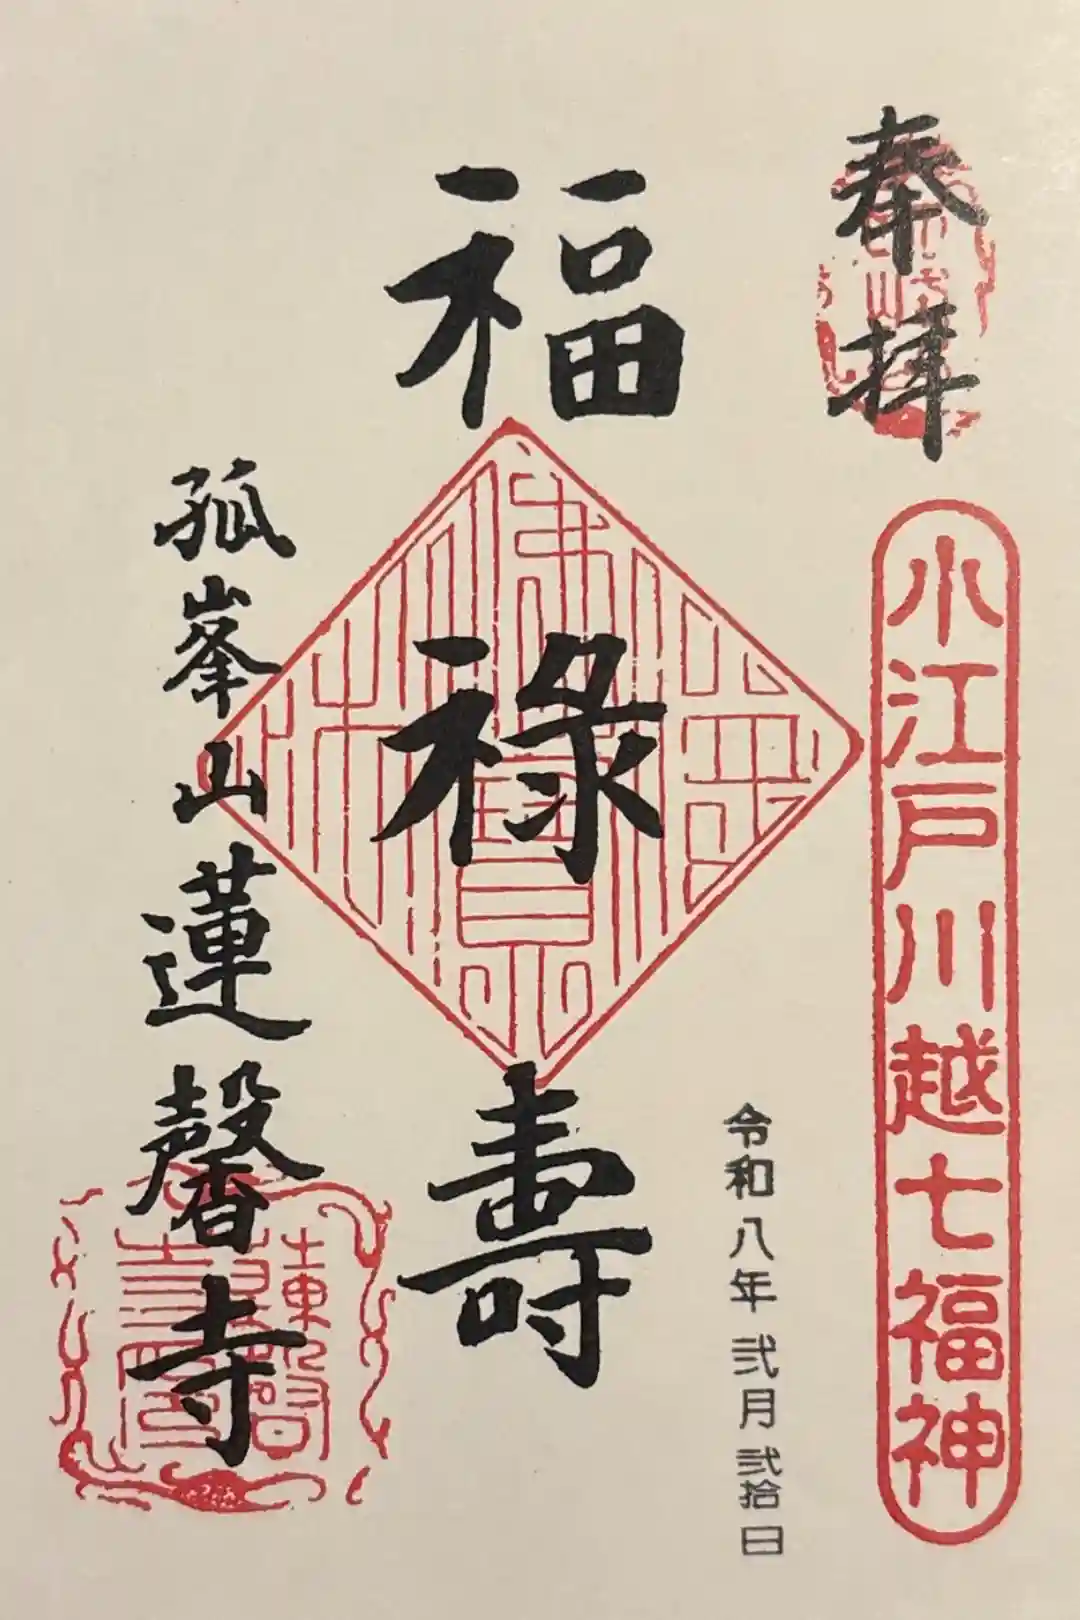 奉拝
小江戸川越七福神
令和八年弐月弐拾日
福禄壽
孤峯山蓮馨寺